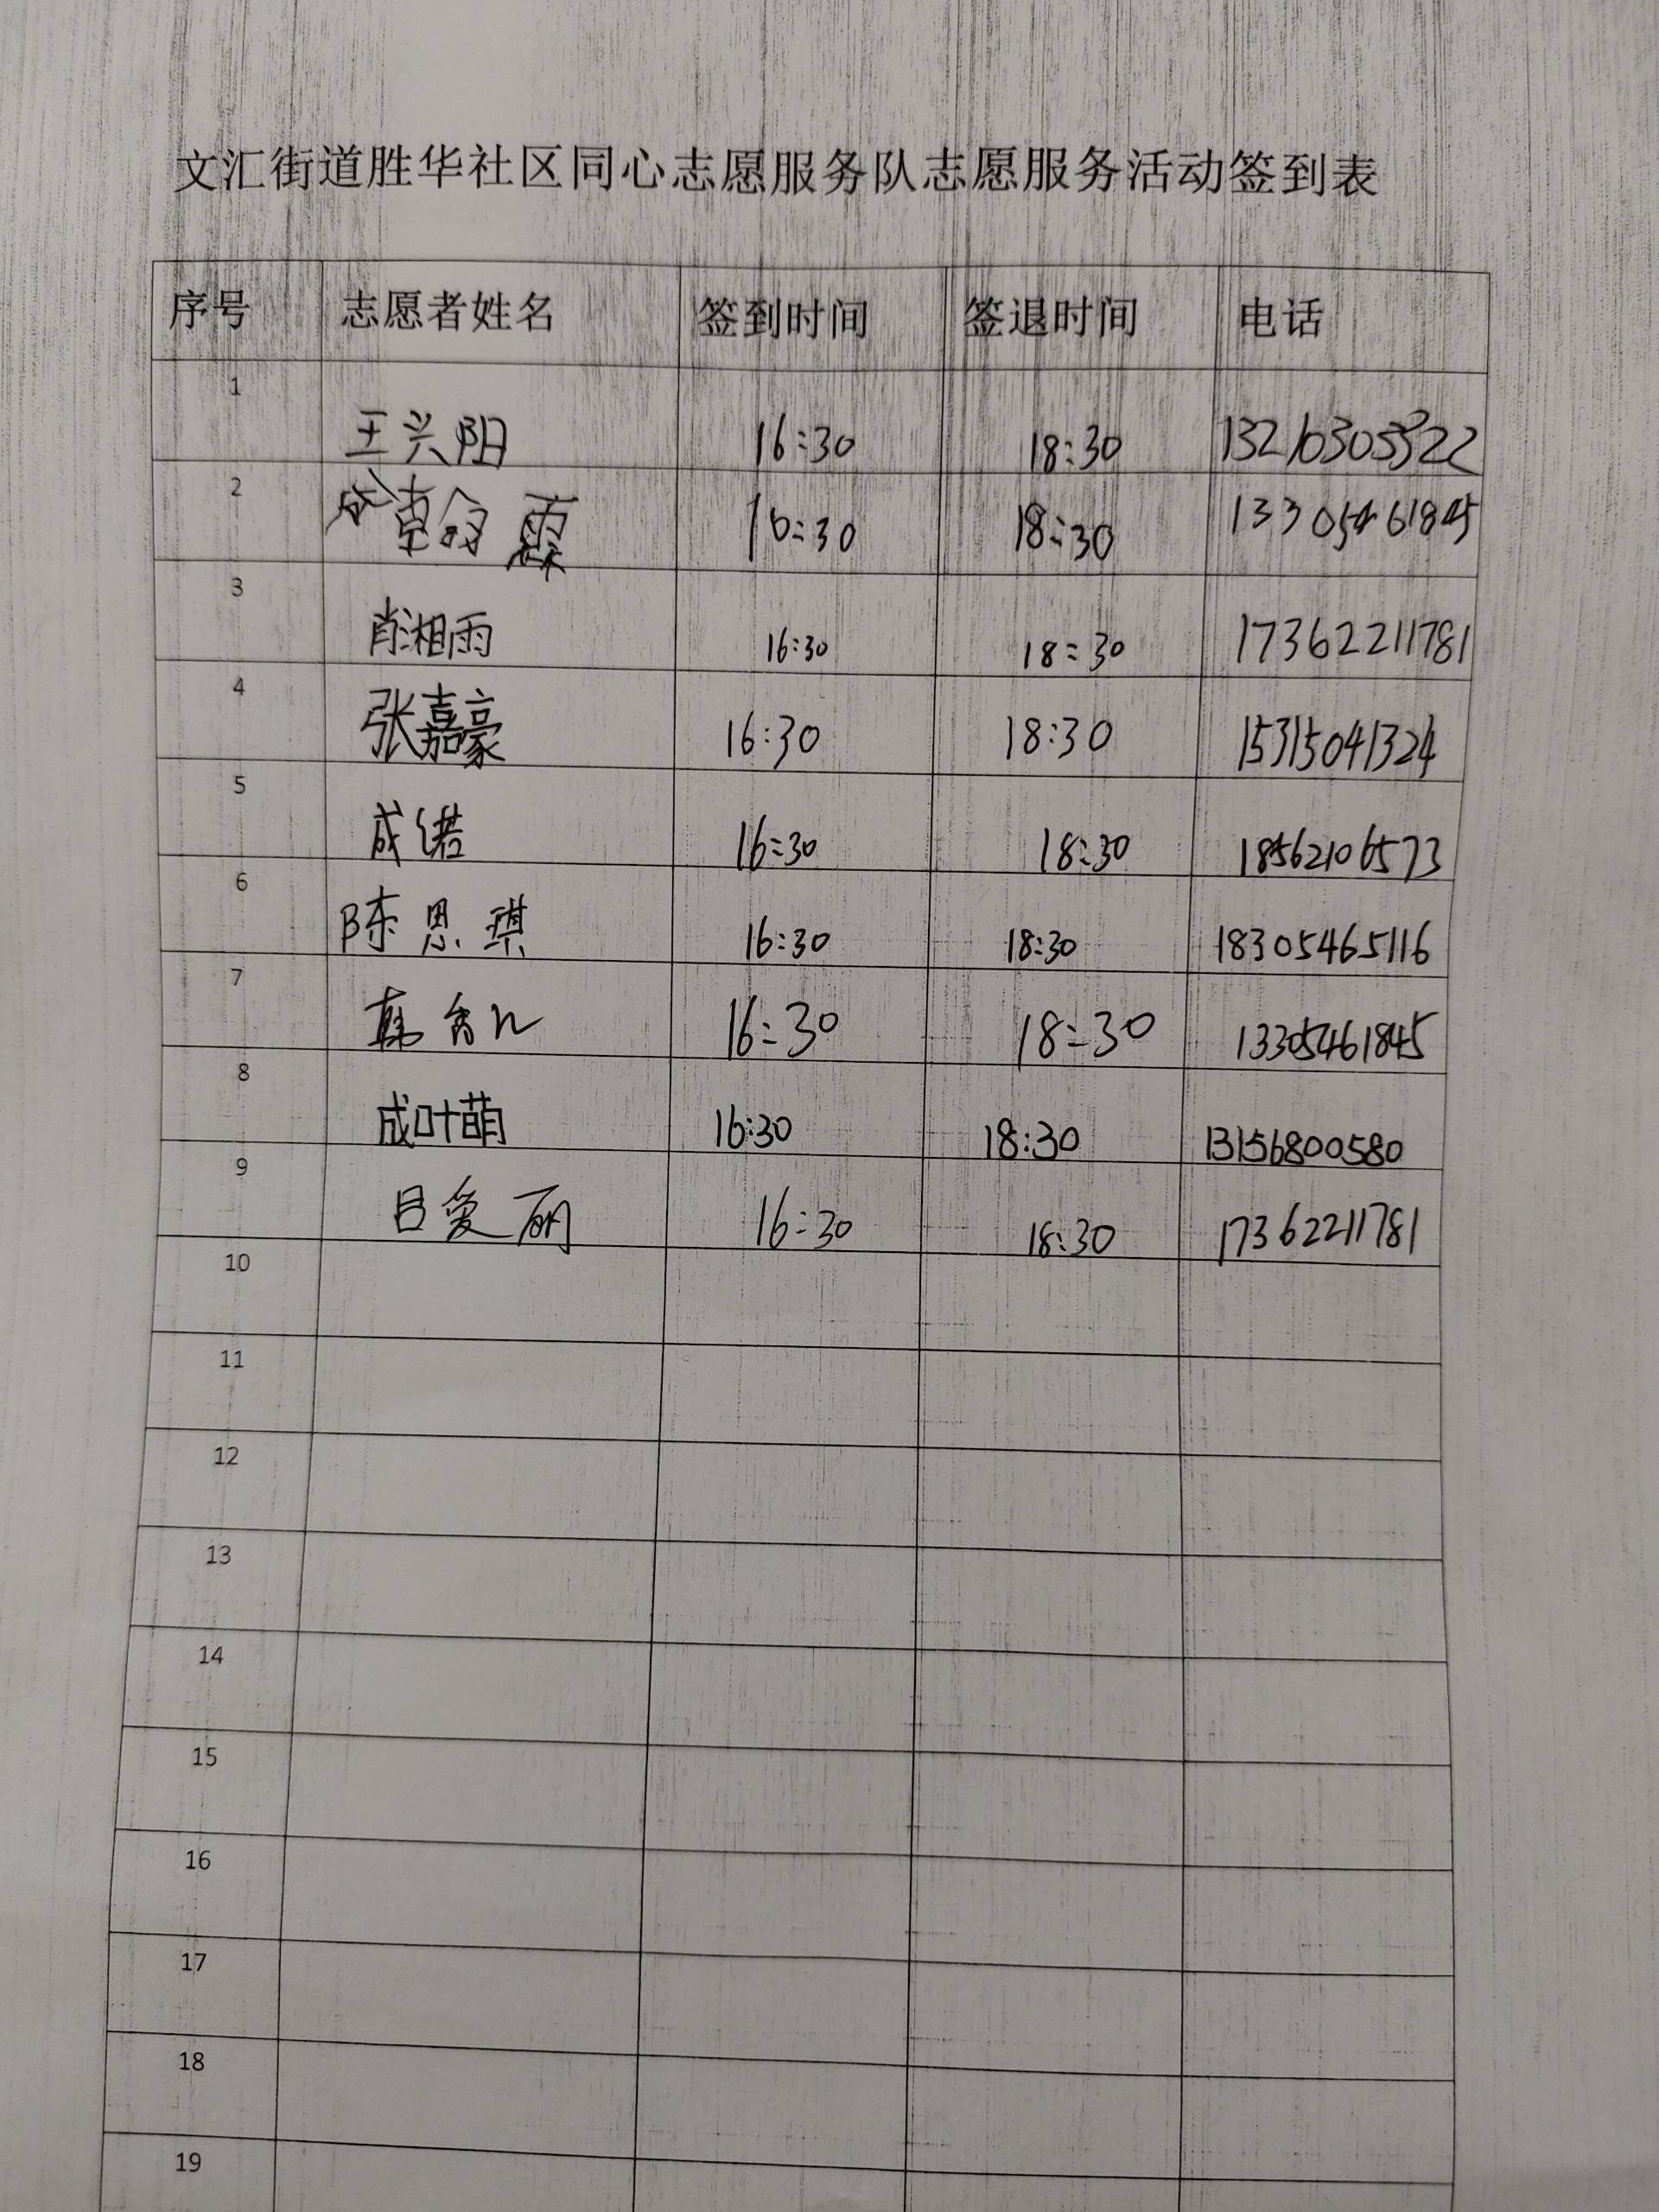 文汇街道胜华社区同心志愿服务队志愿服务活动签到表
序号 志愿者姓名 签到时间 签退时间 电话
1 王兴阳 16:30 18:30
2 16:30 18:30 13305461845
3 肖湘雨 16:30 18:30 17362211781
4 张嘉豪 16:30 18:30 15315041324
5 成诺 16:30 18:30 18562106573
6 陈思琪 16:30 18:30 18305465116
7 16:30 18:30 13305461845
8 成叶萌 16:30 18:30 13156800580
9 吕爱丽 16:30 18:30 17362211781
10
11
12
13
14
15
16
17
18
19